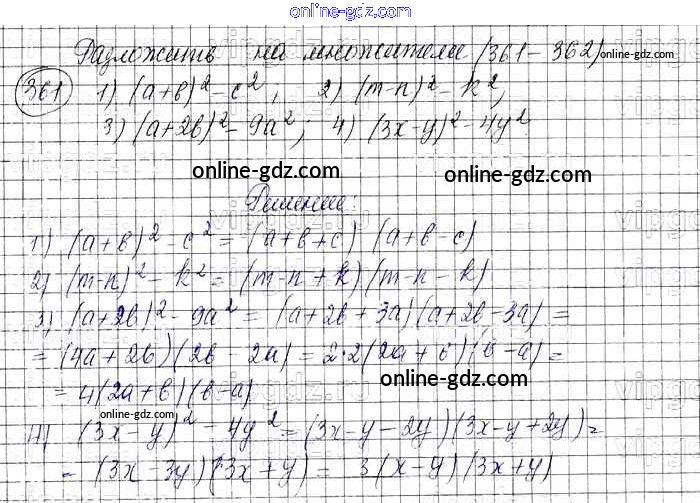 online-gdz.com
Разложить на множители (361-362) online-gdz.com
361 1) (a+b)² - c², 2) (m-n)² - k²,
3) (a+2b)² - 9a²; 4) (3x-y)² - 4y²
online-gdz.com online-gdz.com
Решение:
1) (a+b)² - c² = (a+b+c) (a+b-c)
2) (m-n)² - k² = (m-n+k)(m-n-k)
3) (a+2b)² - 9a² = (a+2b+3a)(a+2b-3a) =
= (4a+2b)(2b-2a) = 2·2(2a+b)(b-a) =
= 4(2a+b)(b-a)
online-gdz.com
online-gdz.com
4) (3x-y)² - 4y² = (3x-y-2y)(3x-y+2y) =
= (3x-3y)(3x+y) = 3(x-y)(3x+y)